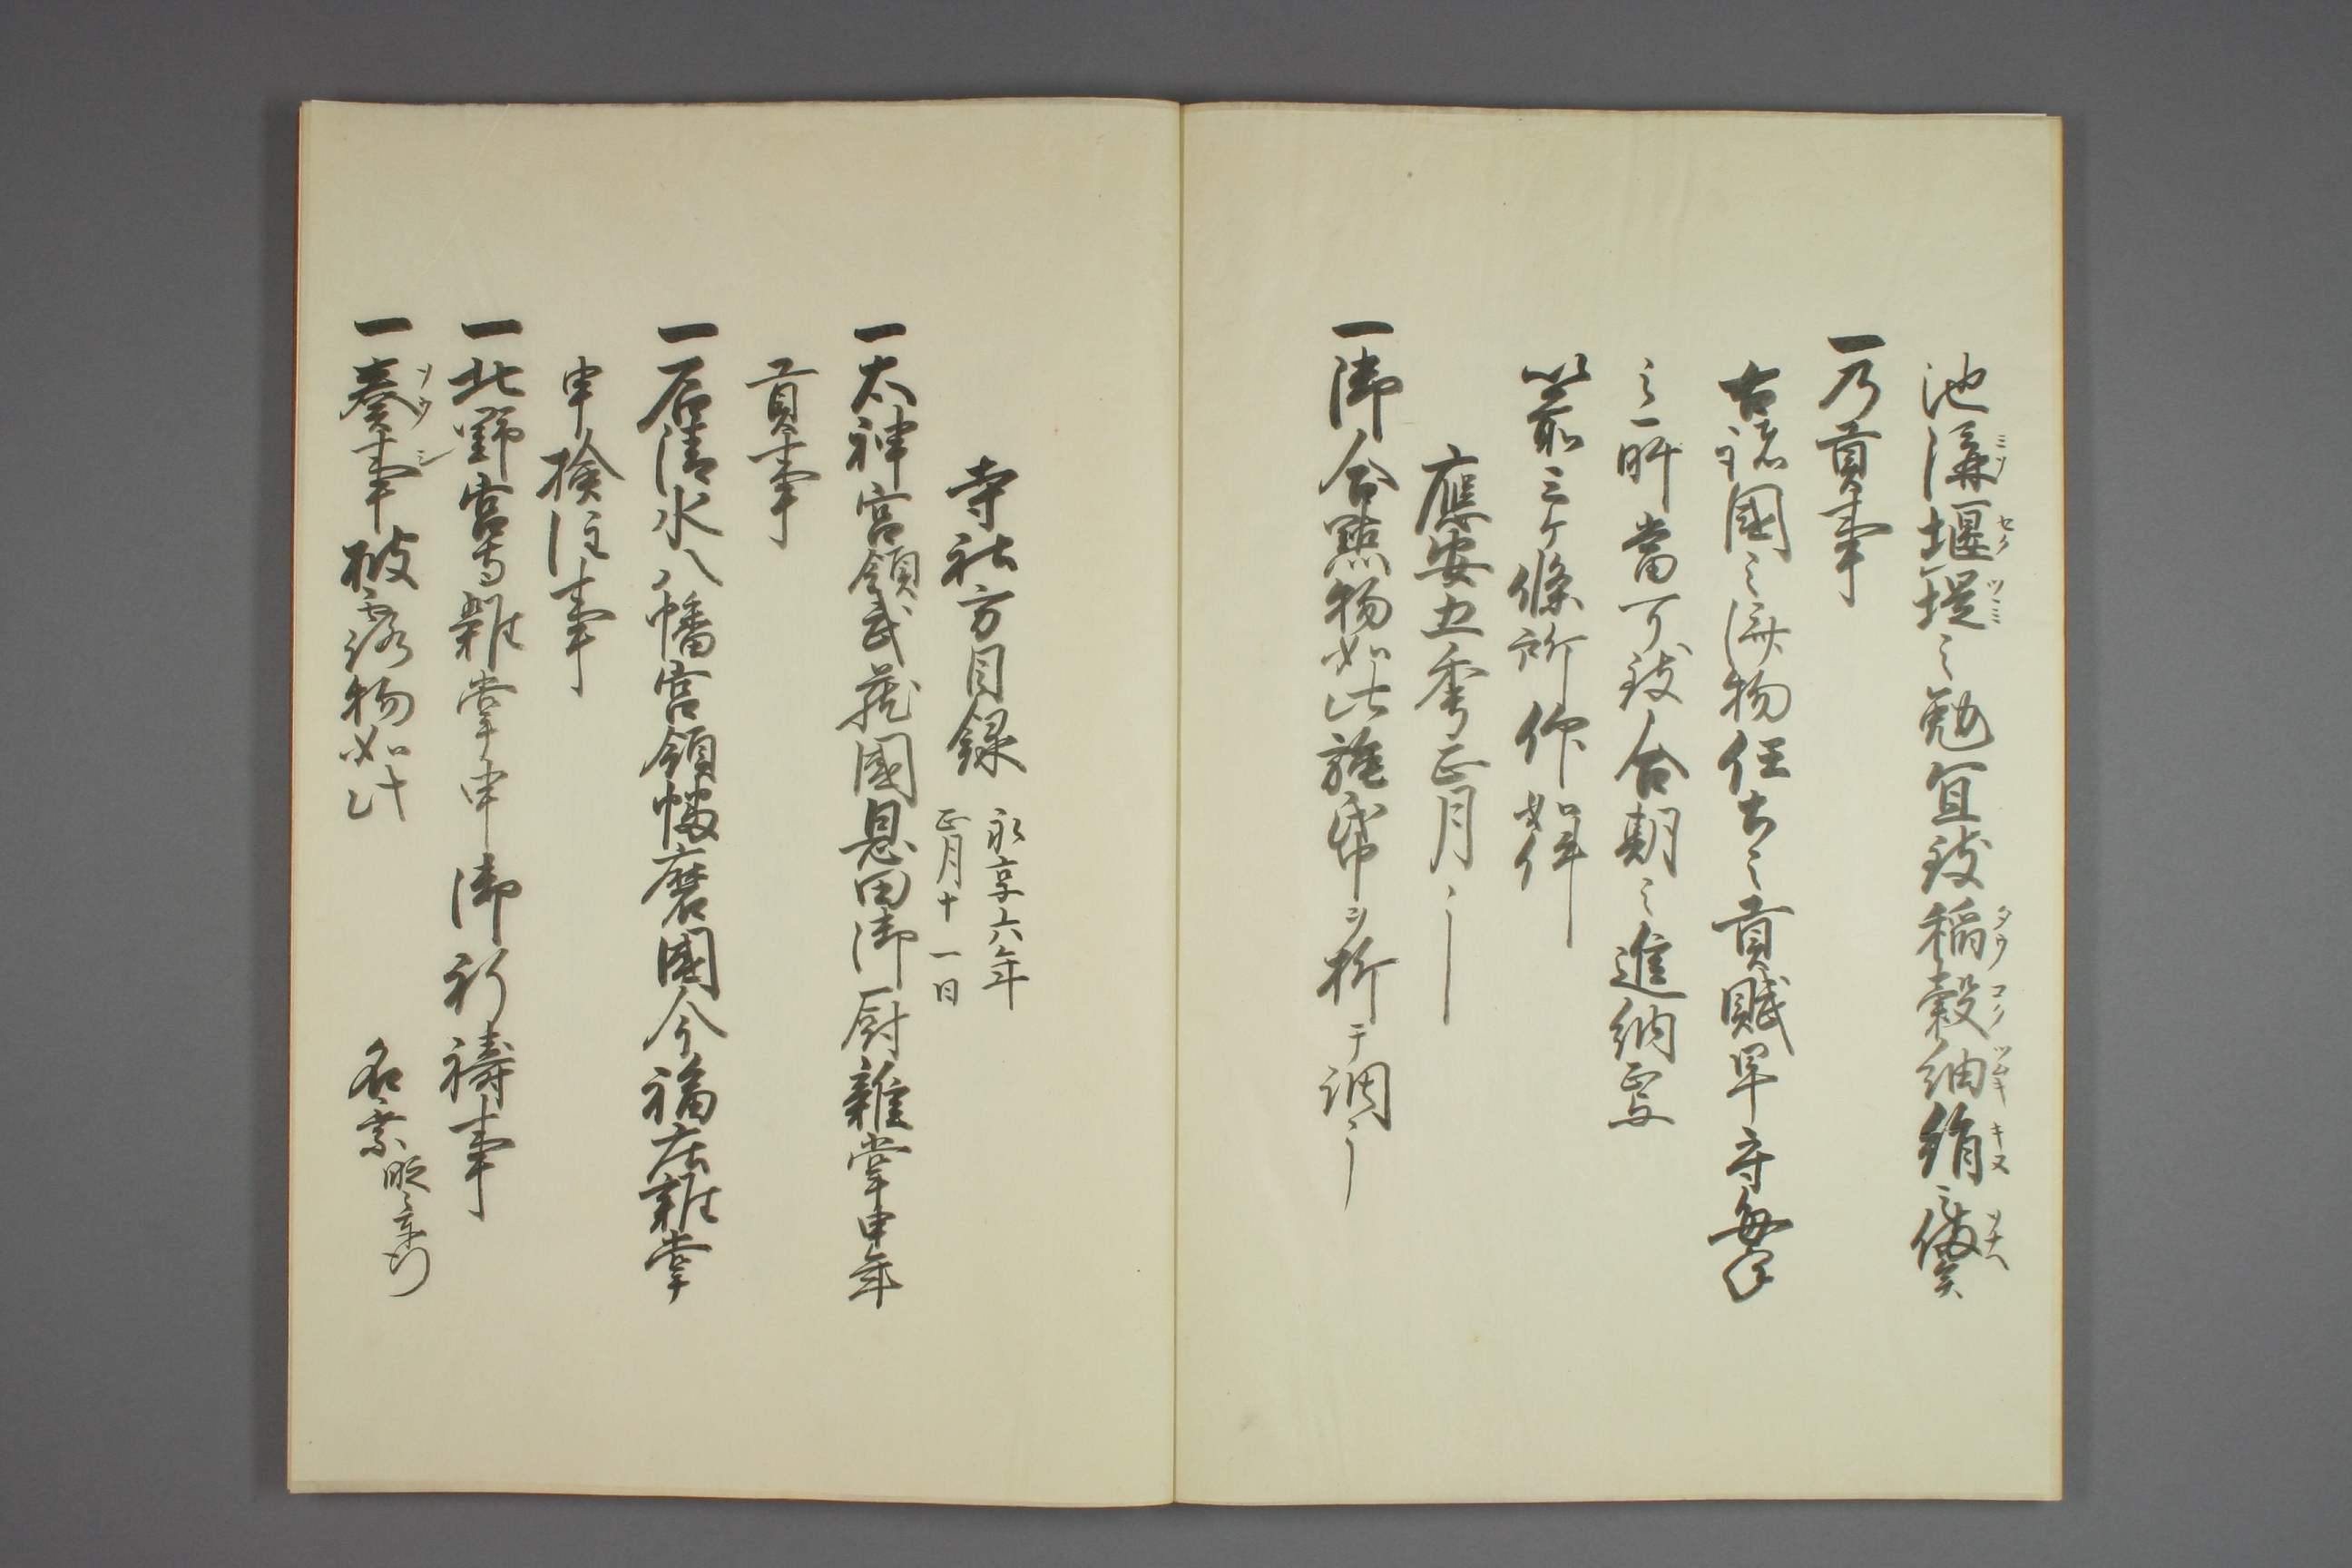 池溝堰堤之勉宜致稲穀紬絹之備矣
一乃貢事
右諸國之済物任土之貢賦早守毎年
之一所當可致合期之進納焉
以前三ケ條所仰如件
應安五年正月
一御合點物如此誰
調
寺社方目録 永享六年正月十一日
一太神宮領武蔵國恩田御厨雑掌申年
貢事
一石清水八幡宮領幡磨國今福庄雑掌
申検注事
一北野宮寺雑掌申御祈禱事
一奏事披露物如此